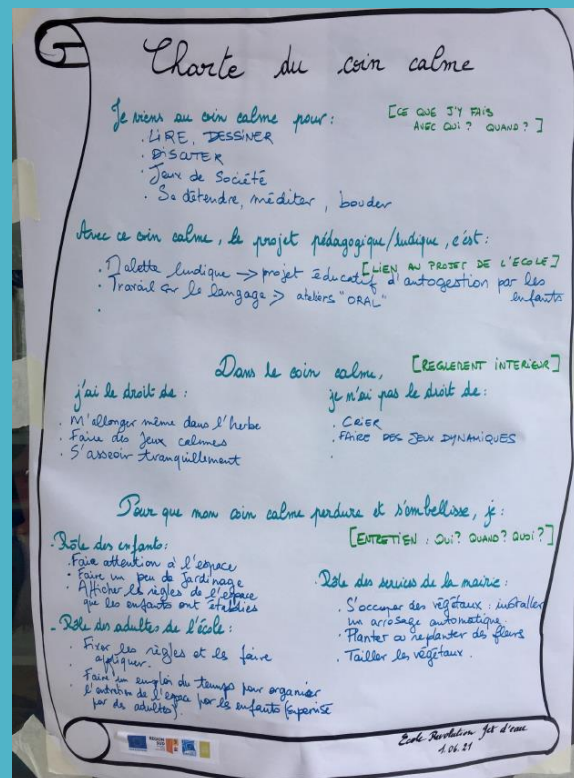 Charte du coin calme
Je viens au coin calme pour :
[CE QUE J'Y FAIS
AVEC QUI ? QUAND ? ]
. LIRE, DESSINER
. DISCUTER
. Jeux de Société
. Se détendre, méditer, bouder
Avec ce coin calme, le projet pédagogique/ludique, c'est :
[LIEN AU PROJET DE L'ECOLE]
. Malette ludique -> projet éducatif d'autogestion par les
enfants
. Travail sur le langage -> ateliers "ORAL"
.
Dans le coin calme,
[REGLEMENT INTERIEUR]
j'ai le droit de :
. M'allonger même dans l'herbe
. Faire des jeux calmes
. S'asseoir tranquillement
je n'ai pas le droit de :
. CRIER
. FAIRE DES JEUX DYNAMIQUES
.
Pour que mon coin calme perdure et s'embellisse, je :
[ENTRETIEN : QUI ? QUAND ? QUOI ?]
- Rôle des enfants :
. Faire attention à l'espace
. Faire un peu de jardinage
. Afficher les règles de l'espace
que les enfants ont établies
- Rôle des adultes de l'école :
. Fixer les règles et les faire
appliquer.
. Faire un emploi du temps pour organiser
l'entretien de l'espace par les enfants (supervisé
par des adultes).
. Rôle des services de la mairie :
. S'occuper des végétaux : installer
un arrosage automatique.
. Planter ou replanter des fleurs
. Tailler les végétaux.
Ecole Révolution Jet d'eau
1.06.21